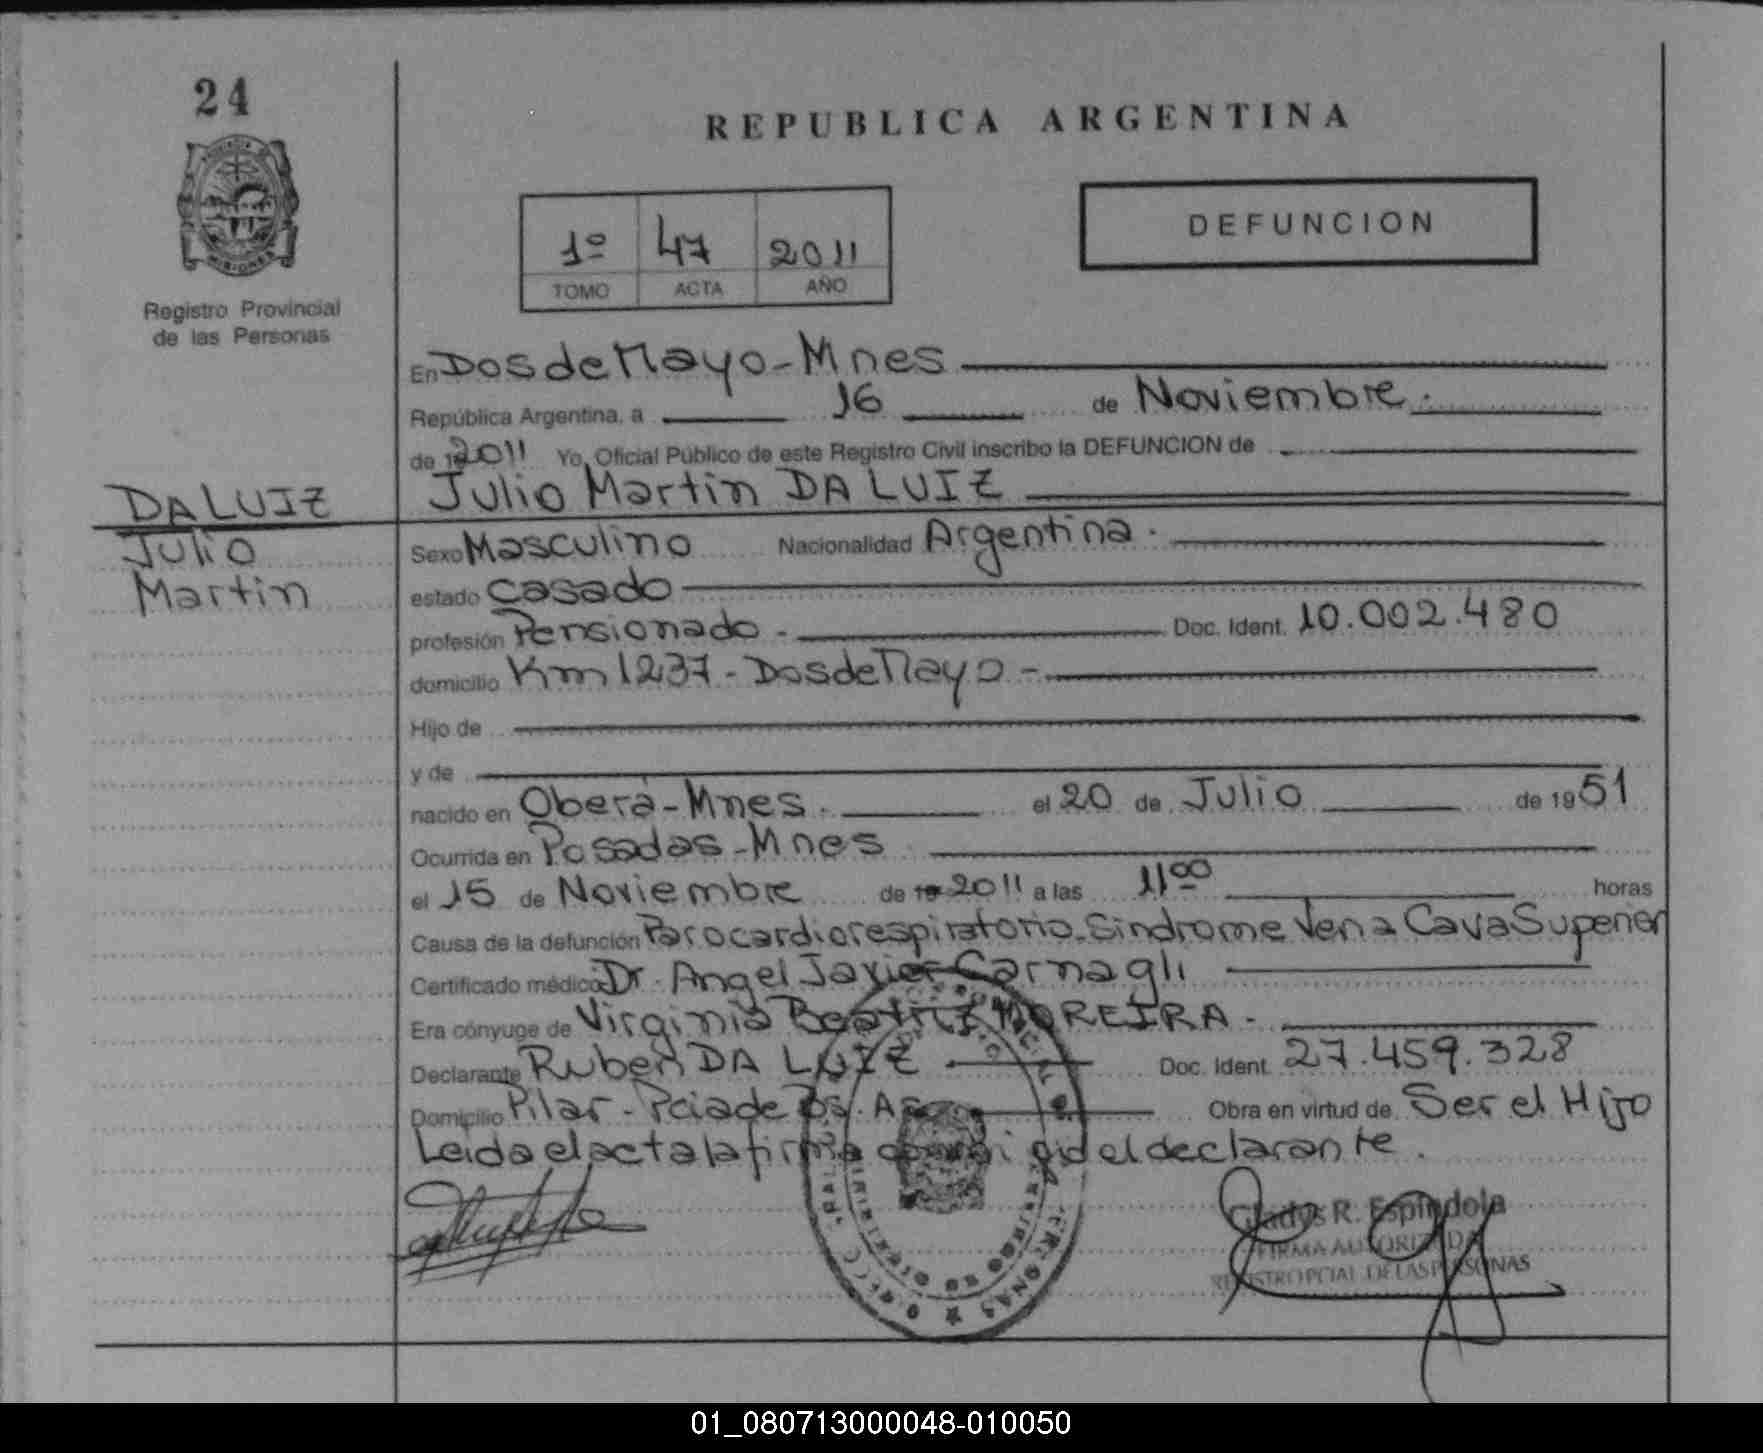 24
REPUBLICA ARGENTINA
DEFUNCION
1º 47 2011
TOMO ACTA AÑO
Registro Provincial
de las Personas
En Dos de Mayo - Mnes
República Argentina, a 16 de Noviembre.
de 2011 Yo, Oficial Público de este Registro Civil inscribo la DEFUNCION de
DA LUIZ
Julio Martin DA LUIZ
Julio
Martin
Sexo Masculino Nacionalidad Argentina.
estado Casado
profesión Pensionado - Doc. Ident. 10.002.480
domicilio Km 1237 - Dos de Mayo -
Hijo de
y de
nacido en Oberá - Mnes. el 20 de Julio de 1951
Ocurrida en Posadas - Mnes
el 15 de Noviembre de 19 2011 a las 11 00 horas
Causa de la defunción Parocardiorespiratorio. Sindrome Vena Cava Superior
Certificado médico Dr. Angel Javier Carnagli
Era cónyuge de Virginia Beatriz MOREIRA -
Declarante Ruben DA LUIZ Doc. Ident. 27.459.328
Domicilio Pilar - Pcia de Bs. As Obra en virtud de Ser el Hijo
Leida el acta la firma conmigo el declarante.
Gladys R. Espindola
FIRMA AUTORIZADA
REGISTRO PCIAL DE LAS PERSONAS
01_080713000048-010050